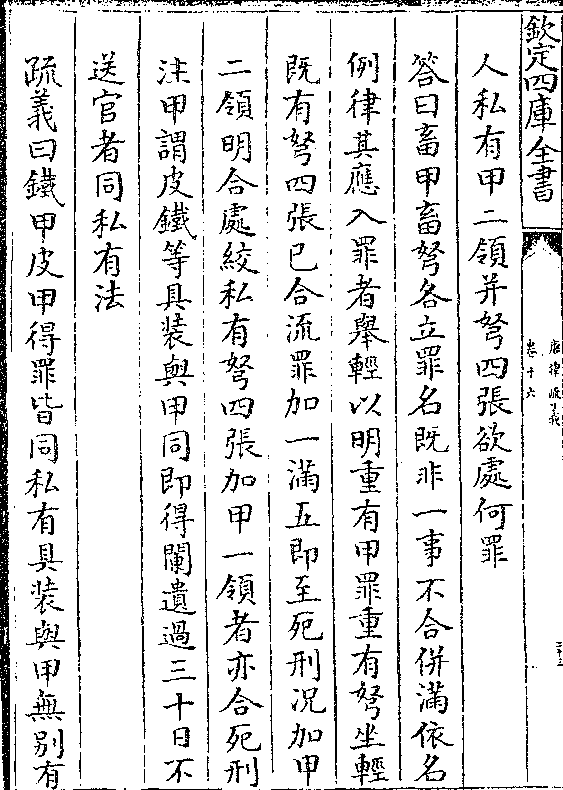 欽定四庫全書
唐律疏義
卷十六
人私有甲二領并弩四張欲處何罪
答曰畜甲畜弩各立罪名既非一事不合併滿依名
例律其應入罪者舉輕以明重有甲罪重有弩坐輕
既有弩四張已合流罪加一滿五即至死刑况加甲
二領明合處絞私有弩四張加甲一領者亦合死刑
注甲謂皮鐵等具装與甲同即得闌遺過三十日不
送官者同私有法
疏義曰鐵甲皮甲得罪皆同私有具装與甲無别有